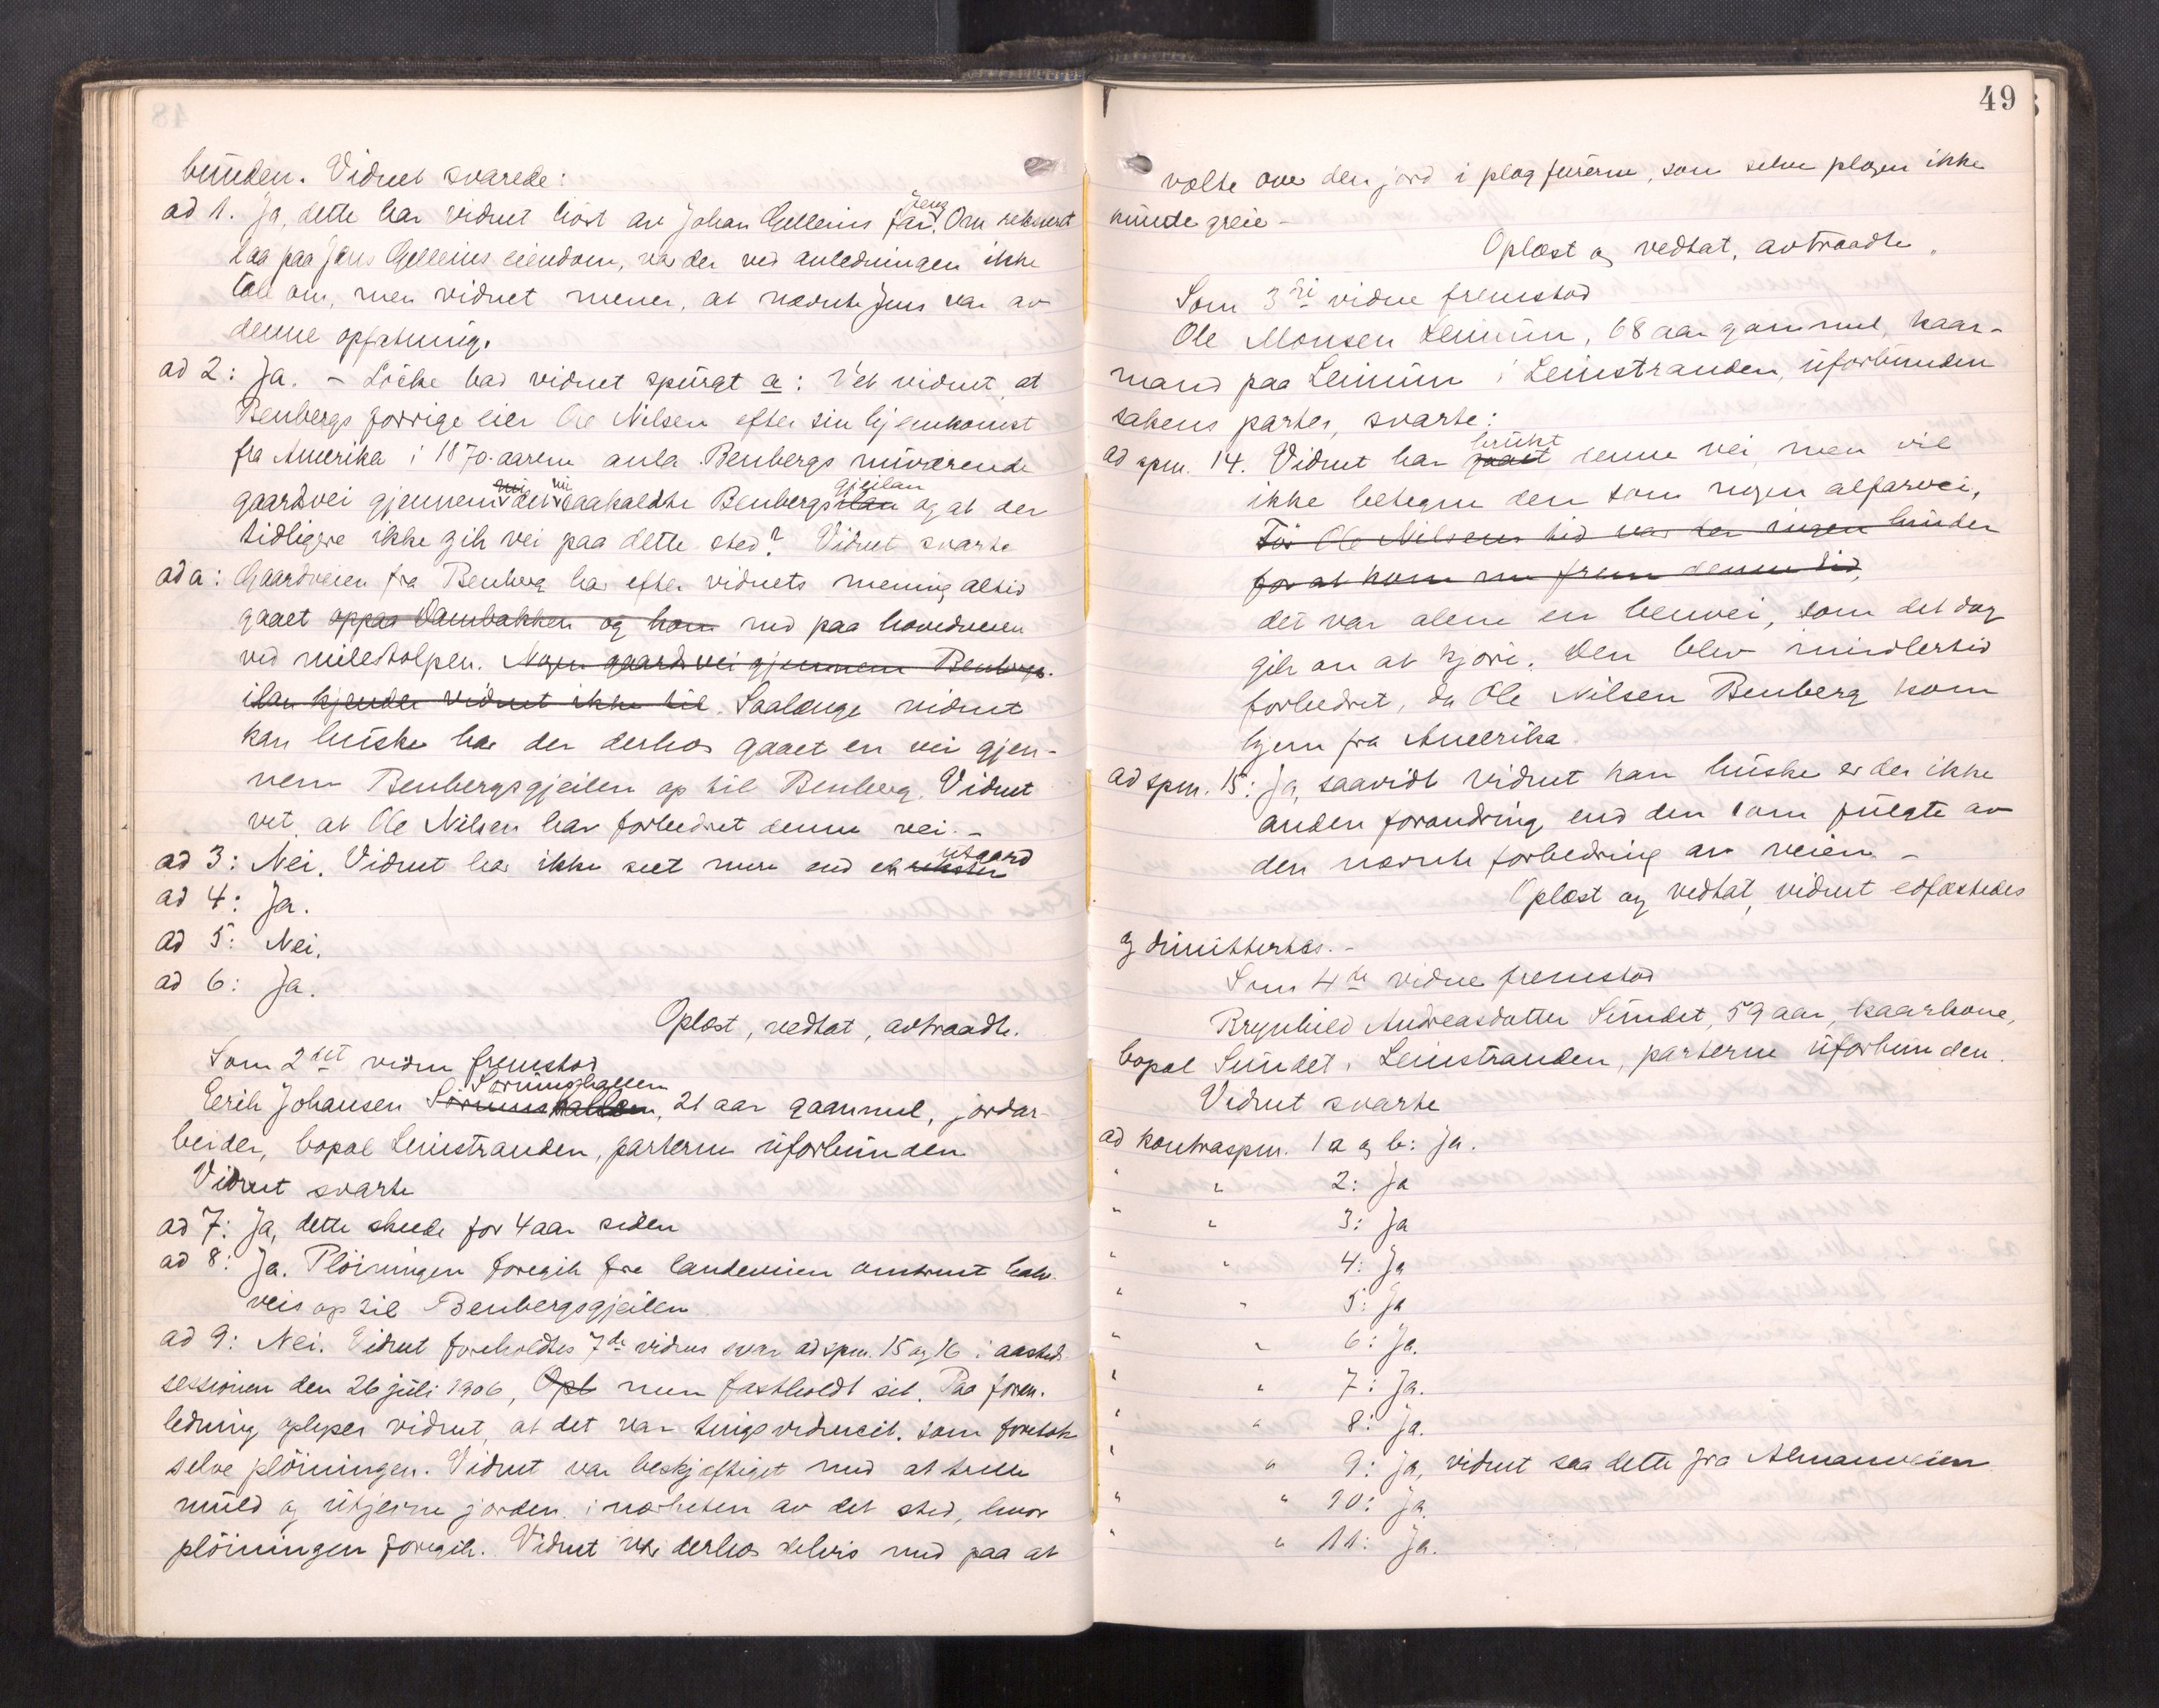 bunden. Vidnet svarede:
ad 1. Ja, dette har vidnet hört av Johan Gelleins far. Om
laa paa Jens Gelleins eiendom, var der ved anledningen ikke
tale om, men vidnet mener, at nævnte Jens var av
denne opfatning.
ad 2: Ja. – Löcke bad vidnet spurgt a: Vet vidnet, at
Benbergs forrige eier Ole Nilsen efter sin hjemkomst
fra Amerika i 1870-aarene anla Benbergs nuværende
gjeilan
gaardsvei gjennem den saakaldte Benbergsilan og at der
tidligere ikke gik vei paa dette sted? Vidnet svarte
ad a: Gaardveien fra Benberg har efter vidnets mening altid
gaaet oppaa Dambakken og kom ned paa hovedveien
ved milestolpen. Nogen gaardsvei gjennem Benbergs-
ilan kjender vidnet ikke til. Saalænge vidnet
kan huske har der derhos gaaet en vei gjen-
nem Benbergsgjeilen op til Benberg. Vidnet
vet, at Ole Nilsen har forbedret denne vei. –
utgaard
ad 3: Nei. Vidnet har ikke seet mere end et
ad 4: Ja.
ad 5: Nei.
ad 6: Ja.
Oplæst, vedtat, avtraadte.
Som 2det vidne fremstod
Erik Johansen 21 aar gammel, jordar-
beider, bopæl Leinstranden, parterne uforbunden
Vidnet svarte
ad 7: Ja, dette skeede for 4 aar siden
ad 8: Ja. Plöiningen foregik fra landeveien omtrent halv-
veis op til Benbergsgjeilen
ad 9: Nei. Vidnet foreholdtes 7de vidnes svar ad spm. 15 og 16 i aasteds-
sessionen den 26 juli 1906, Opl men fastholdt sit. Paa foran-
ledning oplyser vidnet, at det var som foretok
selve plöiningen. Vidnet var beskjæftiget med at
muld og utjevne jorden i nærheten av det sted, hvor
plöiningen foregik. Vidnet var derhos delvis med paa at
49
vælte over den jord i plogfurerne, som selve plogen ikke
kunde greie –
Oplæst og vedtat, avtraadte.
Som 3die vidne fremstod
Ole Monsen Leinum, 68 aar gammel, kaar-
mand paa Leinum i Leinstranden, uforbunden
sakens parter, svarte:
brukt
ad spm. 14. Vidnet har gaaet denne vei, men vil
ikke betegne den som nogen alfarvei.
För Ole Nilsens tid var der ingen
for at komme frem denne tid,
det var alene en benvei, som det dog
gik an at kjöre. Den blev imidlertid
forbedret, da Ole Nilsen Benberg kom
hjem fra Amerika.
ad spm. 15: Ja, saavidt vidnet kan huske er der ikke
anden forandring end den som fulgte av
den nævnte forbedring av veien –
Oplæst og vedtat, vidnet edfæstedes
og dimittertes. –
Som 4de vidne fremstod
Brynhild Andreasdatter Sundet, 59 aar, kaarkone,
bopæl Sundet i Leinstranden, parterne uforbunden.
Vidnet svarte
ad kontraspm. 1 a og b: Ja.
" " 2: Ja
" " 3: Ja
" " 4: Ja
" " 5: Ja
" " 6: Ja.
" " 7: Ja.
" " 8: Ja.
" " 9: Ja, vidnet saa dette fra Almanveien
" " 10: Ja.
" " 11: Ja.